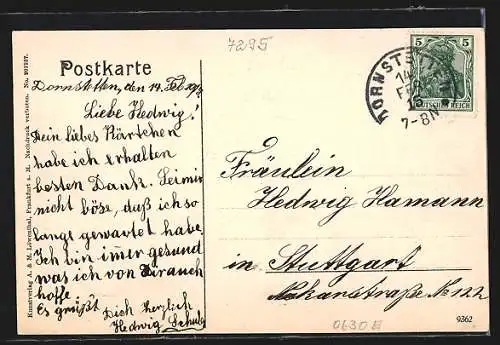 7295
Postkarte
Dornstetten, den 14. Feb.
Liebe Hedwig!
Dein liebes Kärtchen
habe ich erhalten
besten Dank. Sei mir
nicht böse, daß ich so
lange gewartet habe,
Ich bin imer gesund
was ich von Dir auch
hoffe.
Es grüßt Dich herzlich
Hedwig Schulz
Kunstverlag A. & M. Löwenthal, Frankfurt a. M. Nachdruck verboten. No.
5 5
DEUTSCHES REICH
DORNSTETTEN
14
FEB
7-8N
Fräulein
Hedwig Hamann
in Stuttgart
Nekarstraße No 122
0630E
9362